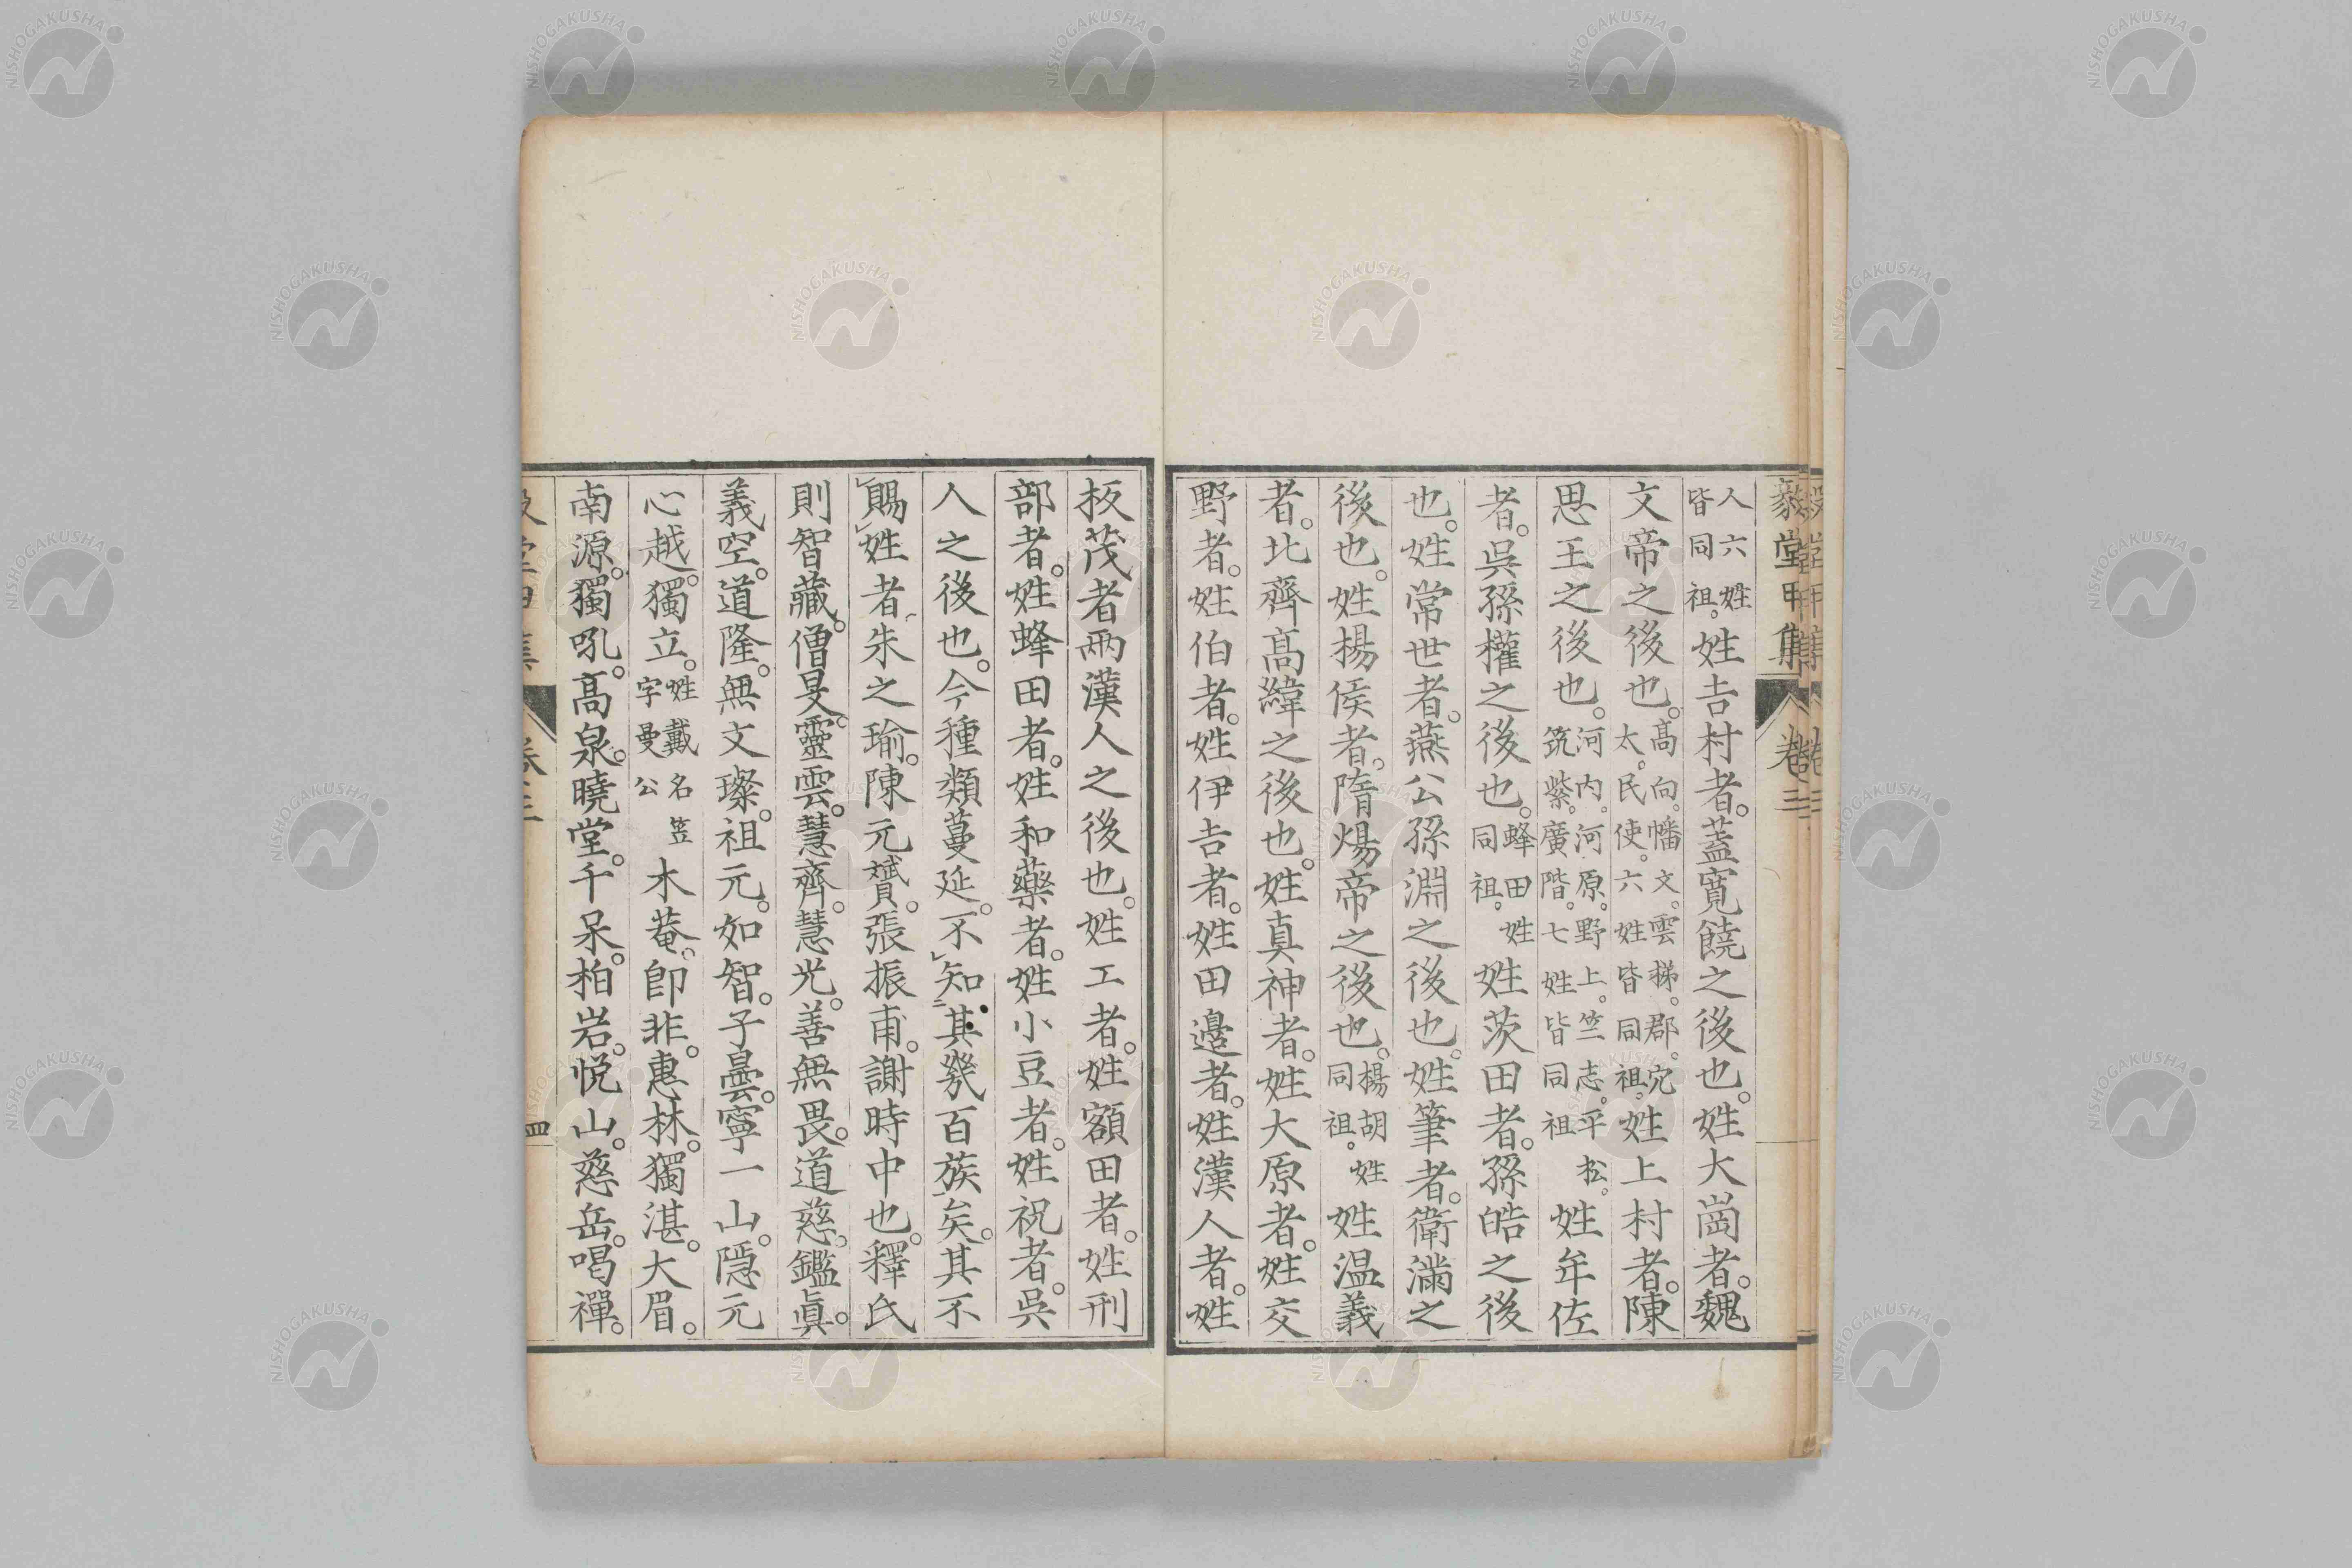 毅堂甲集 卷三
人六姓皆同祖。姓吉村者。蓋寬饒之後也。姓大崗者。魏
文帝之後也。高向。幡文。雲梯。郡。宍太。民使。六姓皆同祖。姓上村者。陳
思王之後也。河内。河原。野上。竺志。平松。筑紫。廣階。七姓皆同祖姓牟佐
者。吳孫權之後也。蜂田姓同祖。姓茨田者。孫皓之後
也。姓常世者。燕公孫淵之後也。姓筆者。衛滿之
後也。姓楊侯者。隋煬帝之後也。楊胡姓同祖。姓温義
者。北齊高緯之後也。姓真神者。姓大原者。姓交
野者。姓伯者。姓伊吉者。姓田邊者。姓漢人者。姓
板茂者兩漢人之後也。姓工者。姓額田者。姓刑
部者。姓蜂田者。姓和藥者。姓小豆者。姓祝者。吳
人之後也。今種類蔓延。不知其幾百族矣。其不
賜姓者朱之瑜。陳元贇。張振甫。謝時中也。釋氏
則智藏。僧旻。靈雲。慧齊。慧光。善無畏。道慈。鑑眞。
義空。道隆。無文璨。祖元。如智。子曇。寧一山。隱元
心越。獨立。姓戴名笠字曼公木菴。卽非。惠林。獨湛。大眉。
南源。獨吼。高泉。曉堂。千呆。柏岩。悦山。慈岳。喝禪。
堂甲集 卷三 四
NISHOGAKUSHA